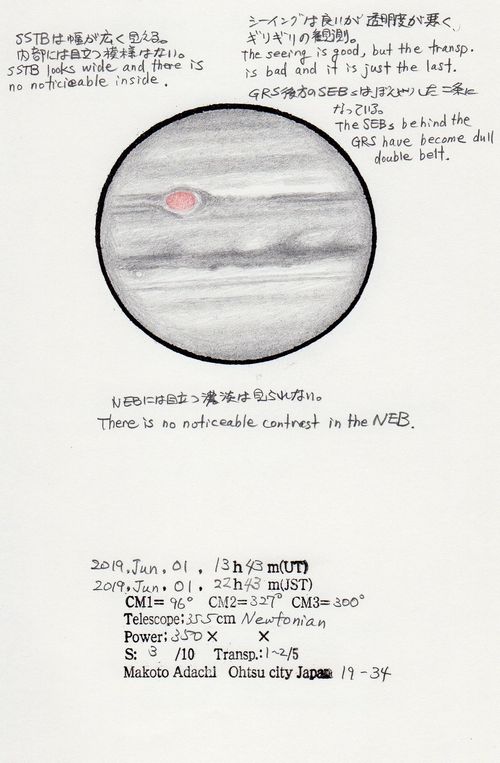 SSTBは幅が広く見える。
内部には目立つ模様はない。
SSTB looks wide and there is
no noticieable inside.
シーイングは良いが透明度が悪く、
ギリギリの観測。
the seeing is good, but the transp.
is bad and it is just the last.
GRS後方のSEBsはぼんやりした二条に
なっている。
The SEBs behind the
GRS have become dull
double belt.
NEBには目立つ濃淡は見られない。
There is no noticeable contrest in the NEB.
2019, Jun, 01, 13h43m(UT)
2019, Jun, 01, 22h43m(JST)
CM1= 96° CM2=327° CM3=300°
Telescope; 355cm Newtonian
Power; 350× ×
S: 3 /10 Transp.: 1~2/5
Makoto Adachi Ohtsu city Japan 19-34